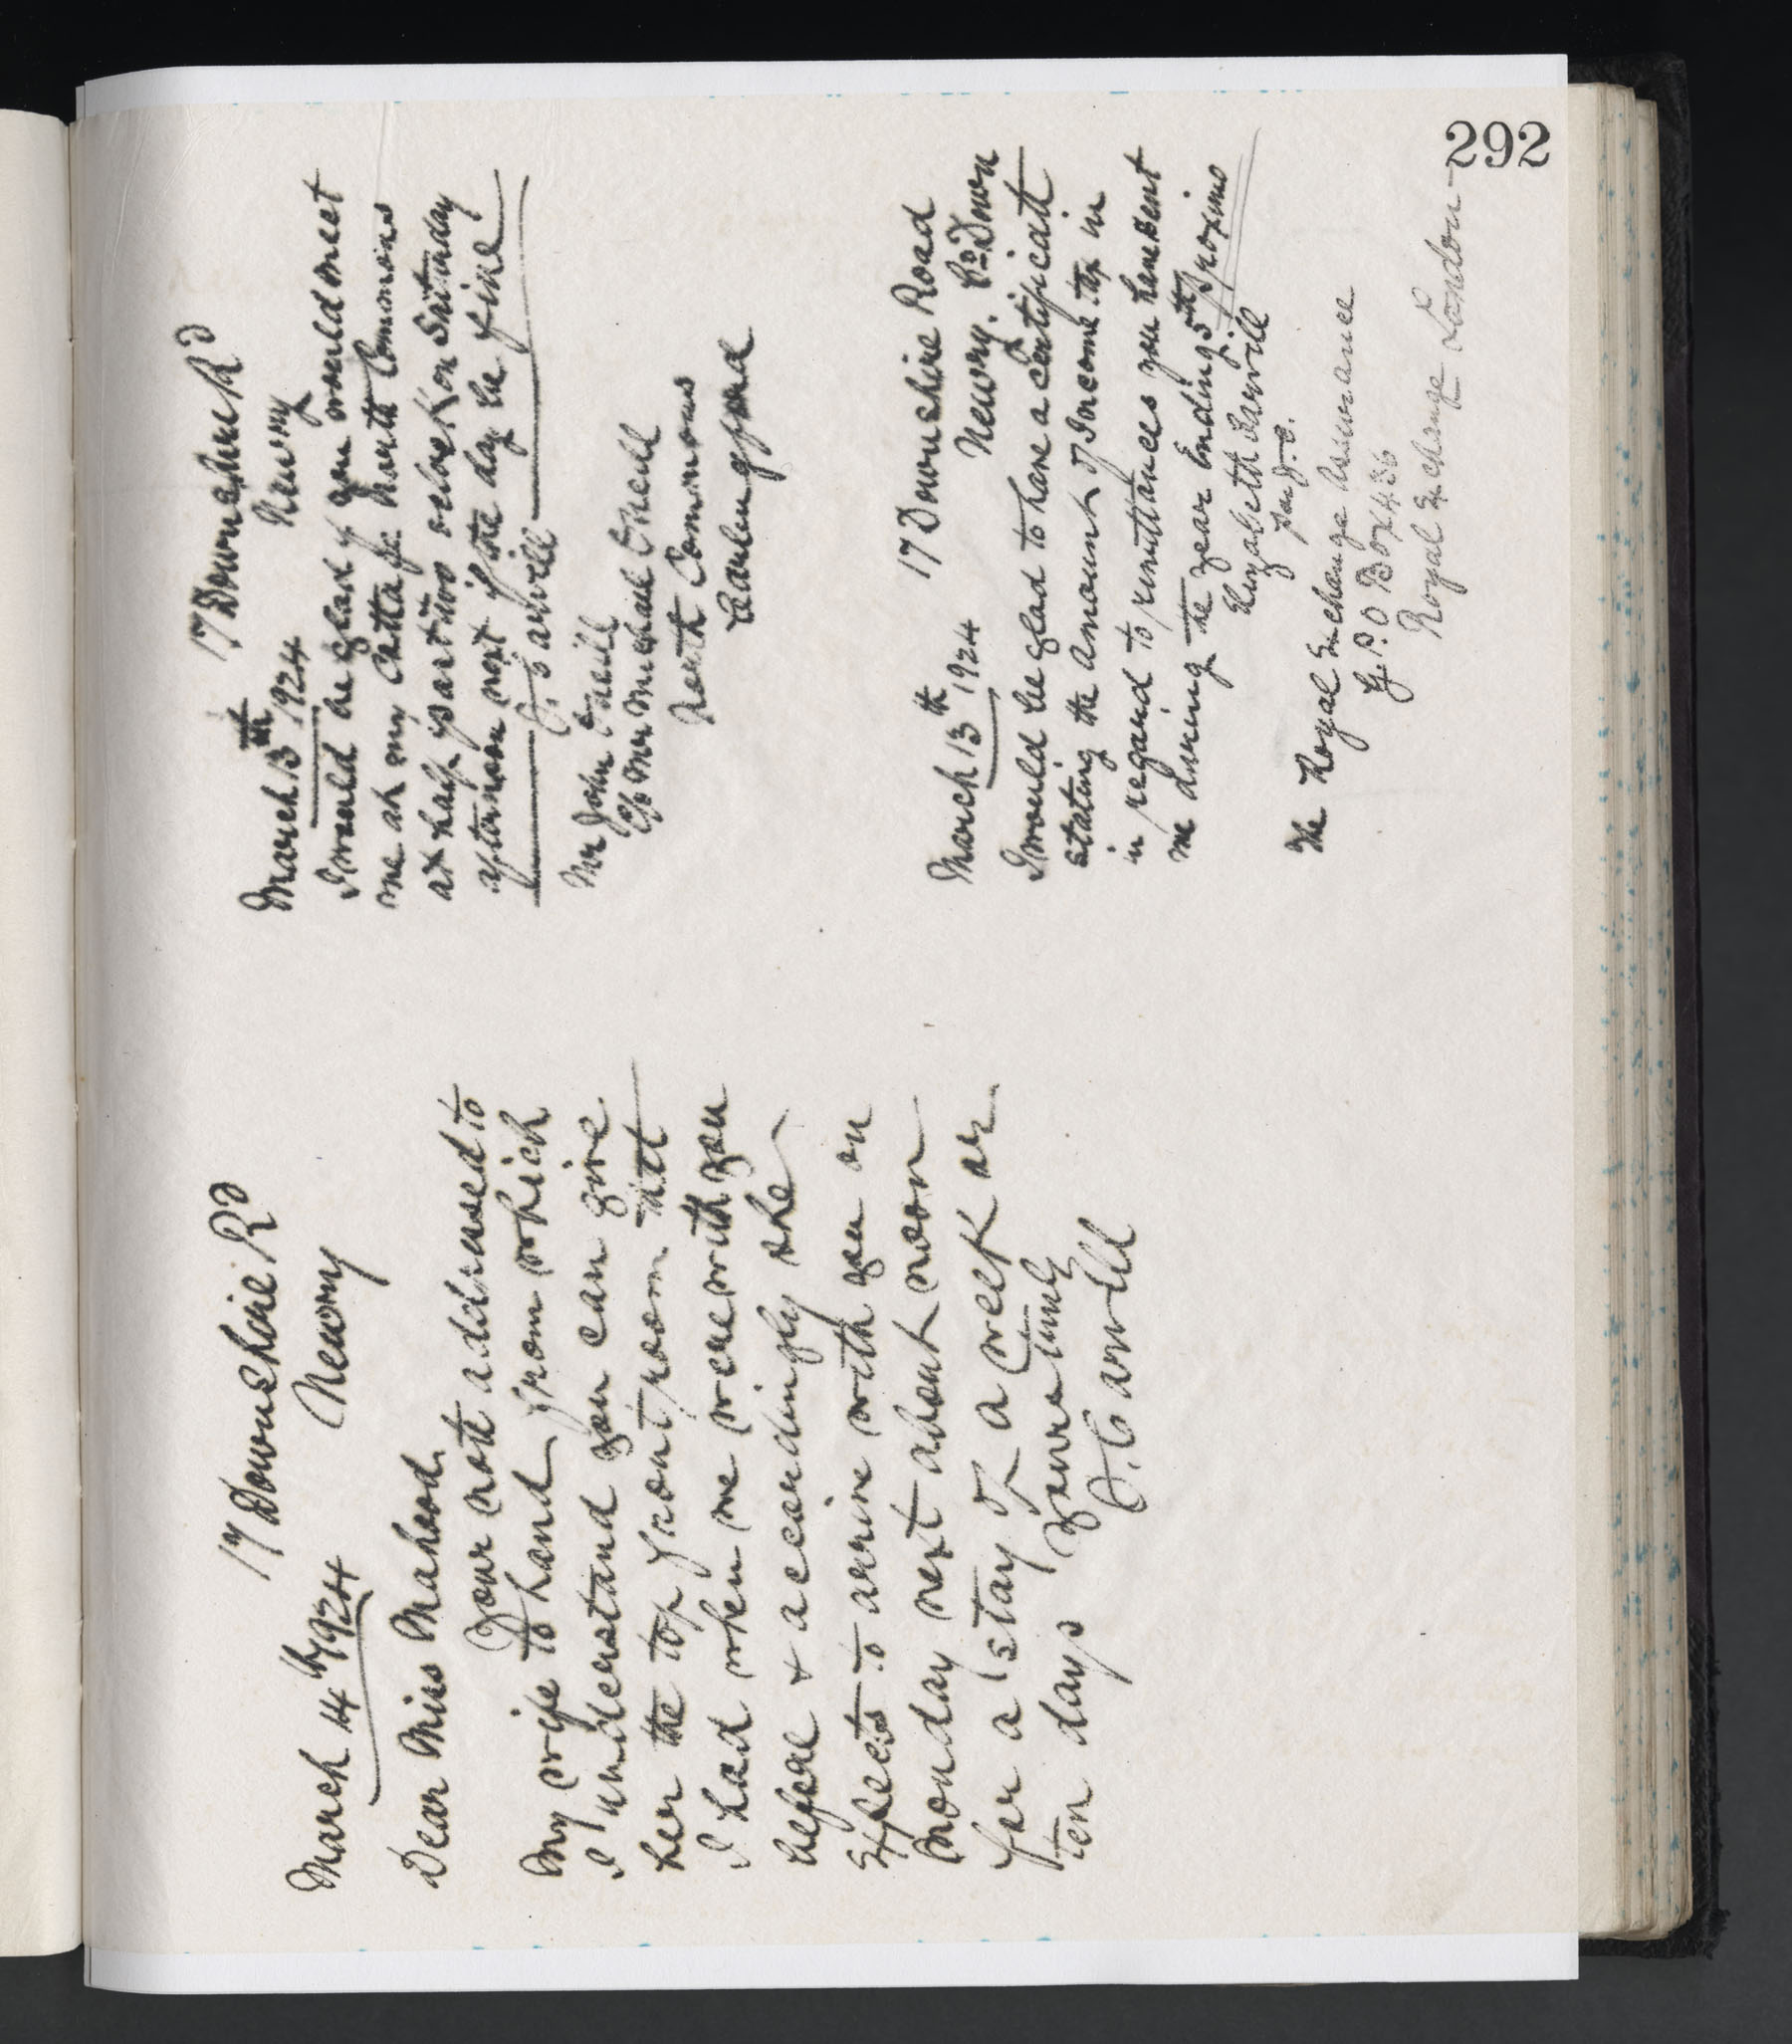 292
March 14th 1924
17 Downshire Rd
Newry
Dear Miss Mahood.
Your note addressed to
my wife to hand from which
I understand you can give
her the top front room that
I had when we were with you
before & accordingly she
expects to arrive with you on
Monday next about noon
for a stay of a week or
ten days yours truly
J. Carvill
17 Downshire Rd
March 13th 1924 Newry
I would be glad if you would meet
me at my North Commons
at half past two oclock on Saturday
afternoon next if the day be fine
J. Carvill
Mr John O'Neill
C/o Mrs Michael O'Neill
North Commons
Carlingford
March 13th 1924 17 Downshire Road
Newry. Co Down
I would be glad to have a Certificate
stating the amount of Income tax in
in regard to remittances you have sent
me during the year Ending 5th proximo
Elizabeth Carvill
per J.C.
The Royal Exchange Assurance
G.P.O Box 436
Royal Exchange London